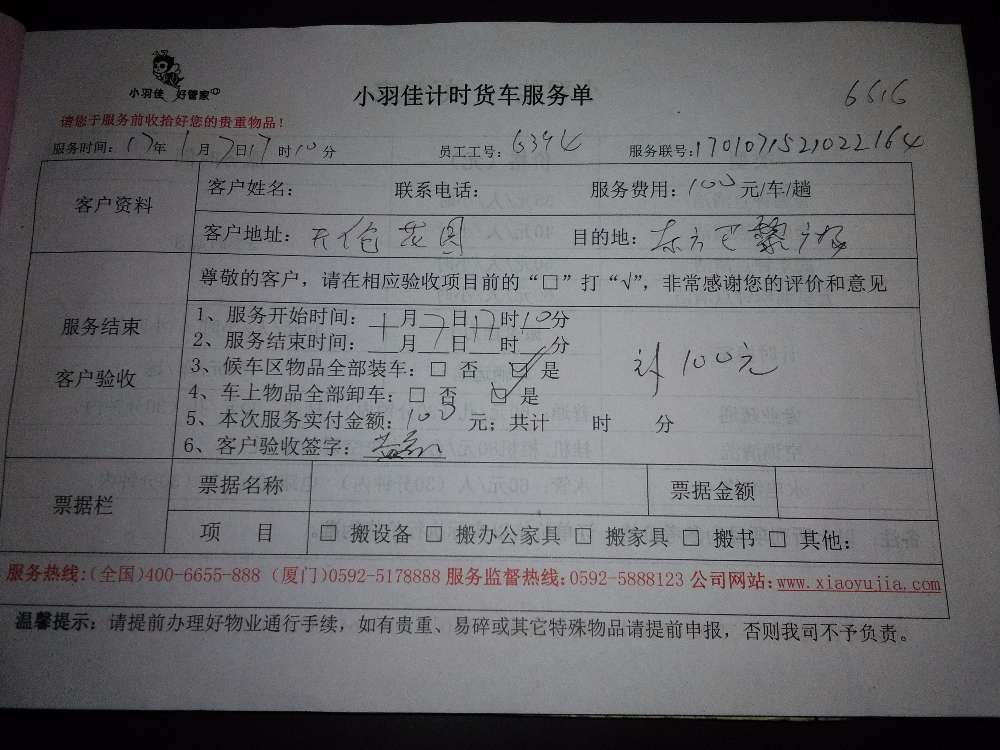 小羽佳 好管家
小羽佳计时货车服务单
6616
请您于服务前收拾好您的贵重物品！
服务时间：17年1月7日17时10分 员工工号：6394 服务联号：1701071521022164
客户资料
客户姓名： 联系电话： 服务费用：100元/车/趟
客户地址：天伦花园 目的地：东方巴黎广场
服务结束
客户验收
尊敬的客户，请在相应验收项目前的“□”打“√”，非常感谢您的评价和意见
1、服务开始时间：1月7日17时10分
2、服务结束时间：__月__日__时__分
3、候车区物品全部装车：□ 否 □ 是
4、车上物品全部卸车：□ 否 □ 是
计100元
5、本次服务实付金额：100元；共计 时 分
6、客户验收签字：
票据栏
票据名称 票据金额
项 目 □ 搬设备 □ 搬办公家具 □ 搬家具 □ 搬书 □ 其他：
服务热线:(全国)400-6655-888 (厦门)0592-5178888 服务监督热线:0592-5888123 公司网站:www.xiaoyujia.com
温馨提示：请提前办理好物业通行手续，如有贵重、易碎或其它特殊物品请提前申报，否则我司不予负责。